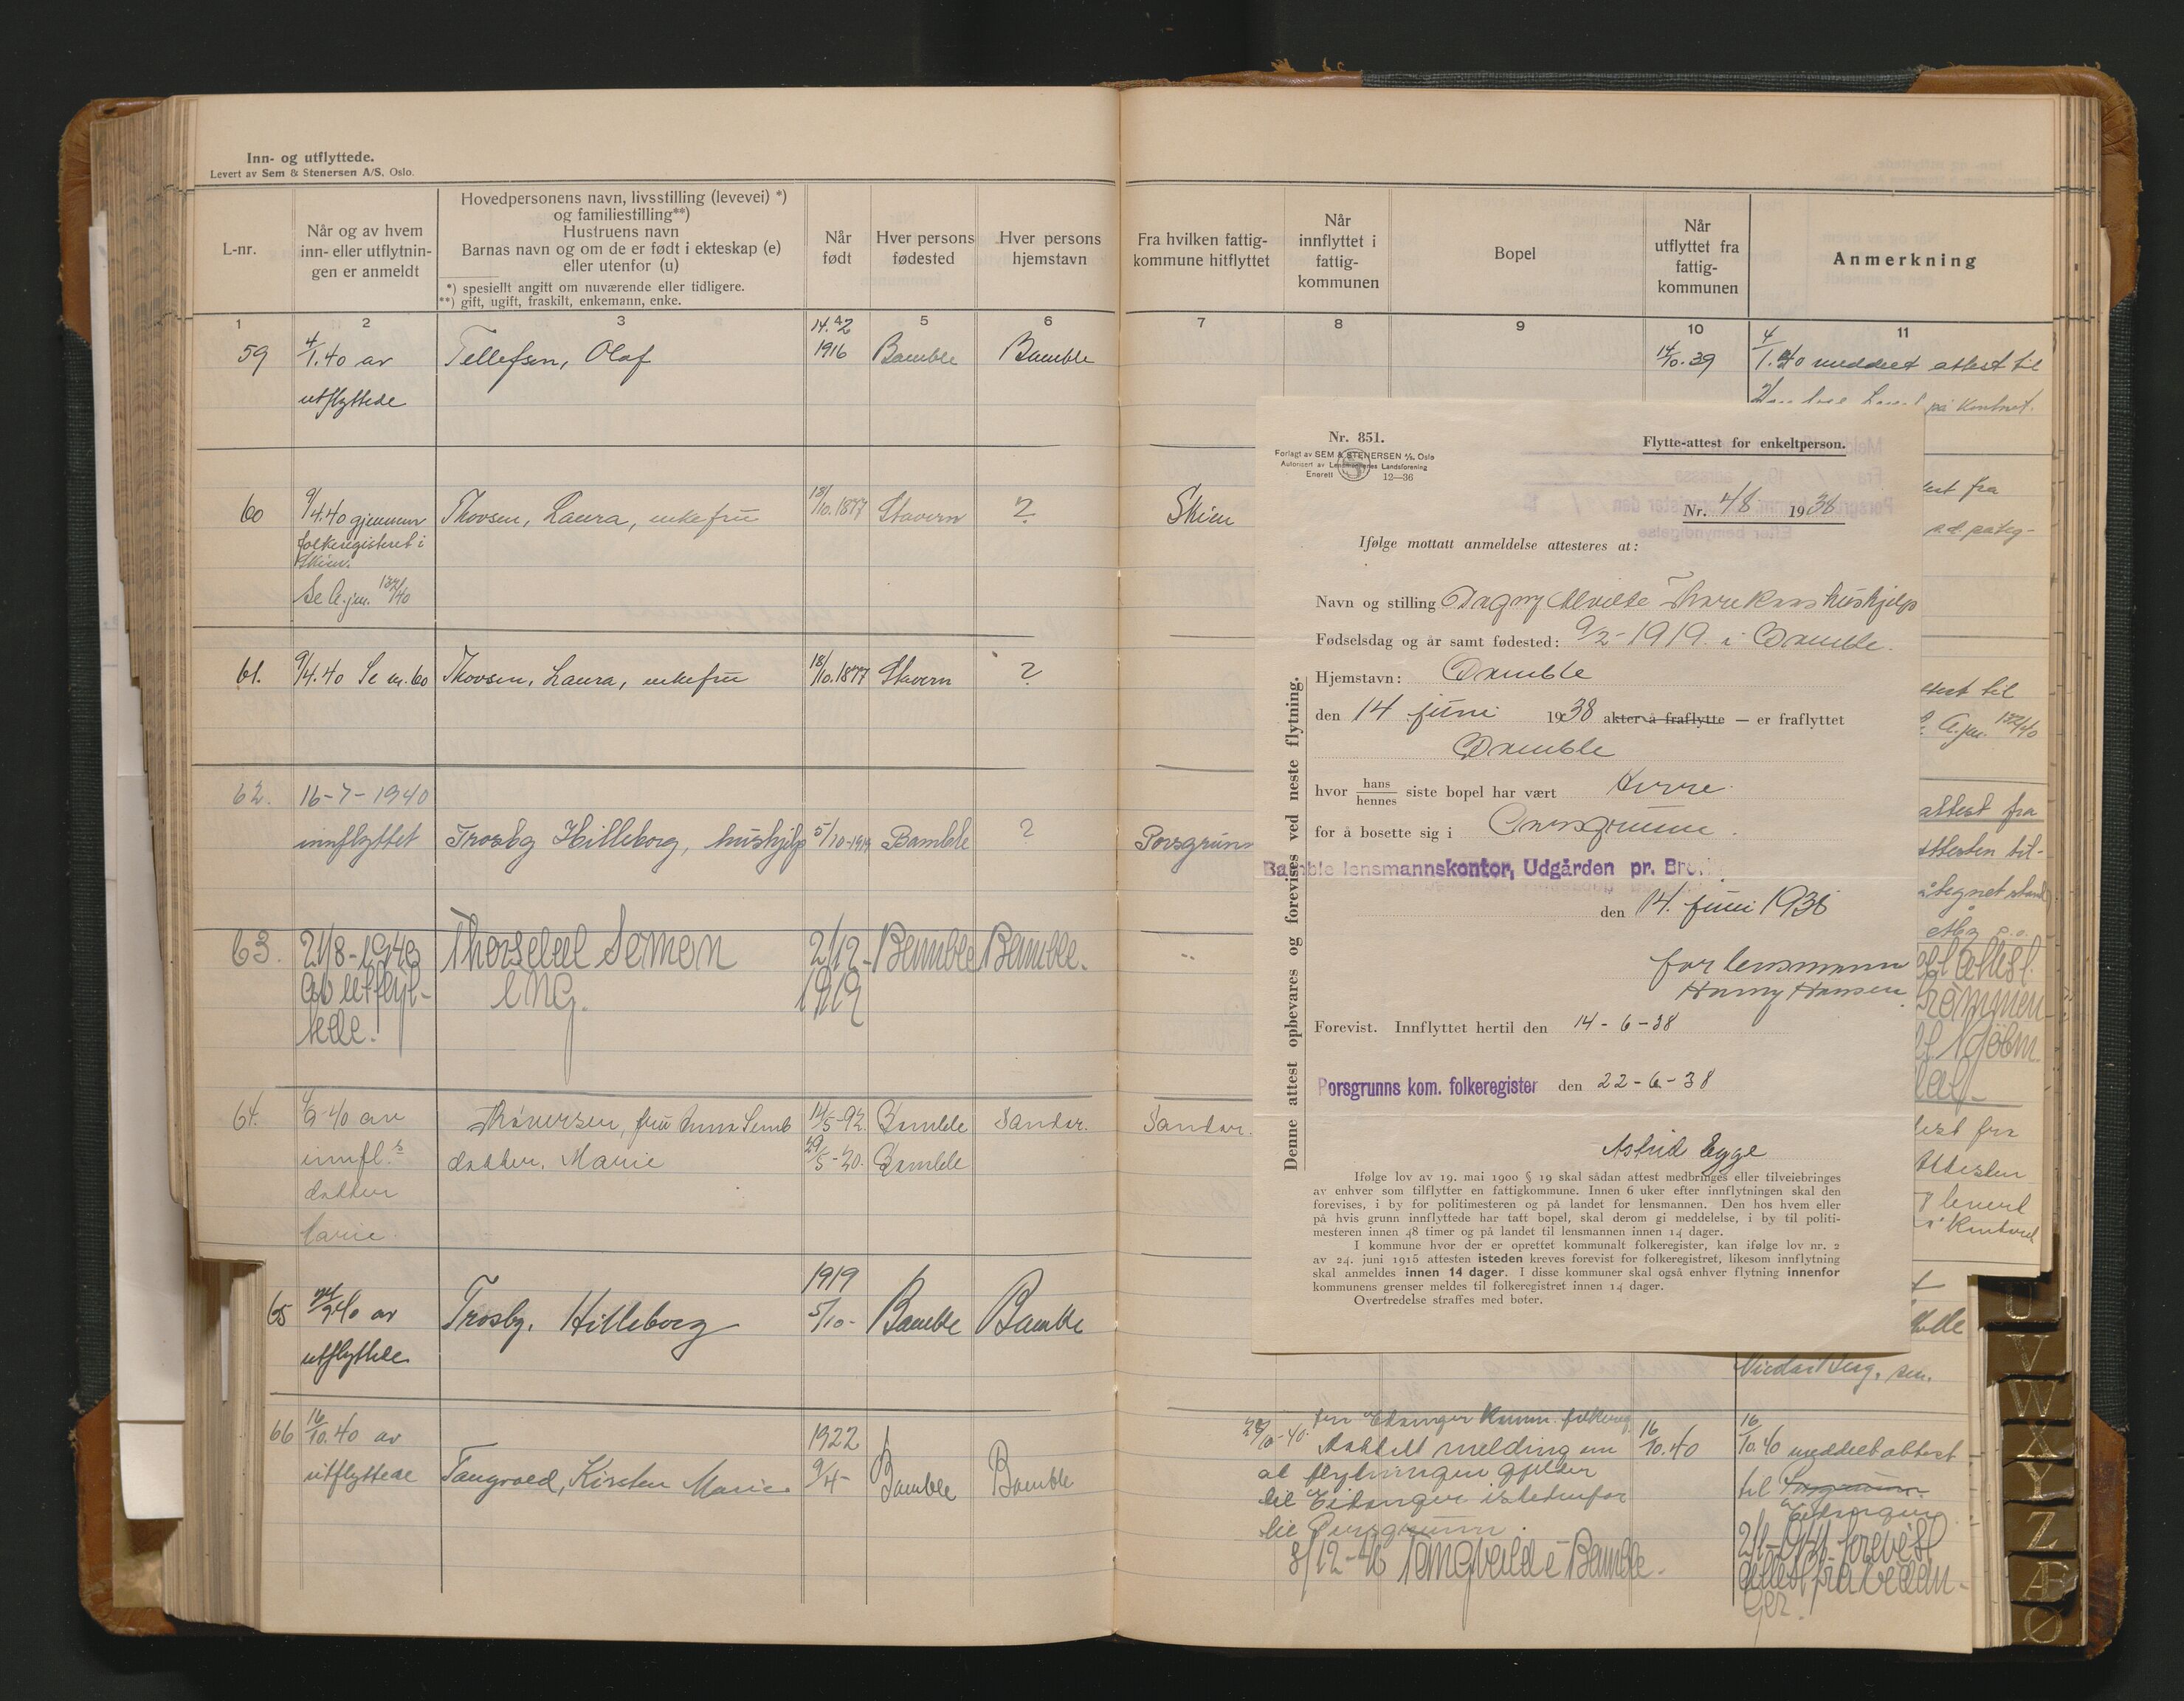 Inn- og utflyttede.
Levert av Sem & Stenersen A/S, Oslo.
L-nr.
Når og av hvem
inn- eller utflytnin-
gen er anmeldt
Hovedpersonens navn, livsstilling (levevei) *)
og familiestilling**)
Hustruens navn
Barnas navn og om de er født i ekteskap (e)
eller utenfor (u)
*) spesiellt angitt om nuværende eller tidligere.
**) gift, ugift, fraskilt, enkemann, enke.
Når
født
Hver persons
fødested
Hver persons
hjemstavn
1 2 3 5 6
59 4/1.40 av Tellefsen, Olaf 1916 Bamble Bamble
utflyttede
60 9/4.40 gjennem Thovsen, Laura, enkefru 18/10.1877 Stavern ?
folkeregisteret i
Skien.
Se A.jnr. 132/40
61. 9/4.40 Se nr. 60 Thovsen, Laura, enkefru 18/10.1877 Stavern ?
62. 16-7-1940
innflyttet Trosby Hilleborg, hushjelp 5/10-1919 Bamble ?
63. 21/8-1940 Thorsdal Semon 2/12- Bamble Bamble.
av utflyt- 1919
tede.
64. av fru Anna 14/5-92. Bamble Sandar.
innfl. datter, Marie 29/5-20. Bamble
datter
Marie.
1919
65 av Trosby, Hilleborg 5/10- Bamble Bamble
utflyttede
66 16/10.40 av 1922
utflyttede Tangvald, Kirsten Marie 9/4- Bamble Bamble
Fra hvilken fattig-
kommune hitflyttet
Når
innflyttet i
fattig-
kommunen
Bopel
Når
utflyttet fra
fattig-
kommunen
Anmerkning
7 8 9 10 11
14/10.39 4/1.40 meddelt attest til
på kontret.
Skien
Porsgrunn
Sandar.
Nr. 851.
Forlagt av SEM & STENERSEN A/S, Oslo
Autorisert av Lensmennenes Landsforening
Enerett 12—36
Flytte-attest for enkeltperson.
Nr. 48 1938
Ifølge mottatt anmeldelse attesteres at:
Navn og stilling Dagny Alvilde hushjelp
Fødselsdag og år samt fødested: 9/2-1919 i Bamble.
Hjemstavn: Bamble
den 14 juni 1938 akter å fraflytte — er fraflyttet
Bamble
hvor hans/hennes siste bopel har vært Herre.
for å bosette sig i Porsgrunn.
Bamble lensmannskontor, Udgården pr. Br
den 14. juni 1938
for lensmann
Harry Hansen.
Forevist. Innflyttet hertil den 14-6-38
Porsgrunns kom. folkeregister den 22-6-38
Astrid Egge
Ifølge lov av 19. mai 1900 § 19 skal sådan attest medbringes eller tilveiebringes
av enhver som tilflytter en fattigkommune. Innen 6 uker efter innflytningen skal den
forevises, i by for politimesteren og på landet for lensmannen. Den hos hvem eller
på hvis grunn innflyttede har tatt bopel, skal derom gi meddelelse, i by til politi-
mesteren innen 48 timer og på landet til lensmannen innen 14 dager.
I kommune hvor der er oprettet kommunalt folkeregister, kan ifølge lov nr. 2
av 24. juni 1915 attesten isteden kreves forevist for folkeregistret, likesom innflytning
skal anmeldes innen 14 dager. I disse kommuner skal også enhver flytning innenfor
kommunens grenser meldes til folkeregistret innen 14 dager.
Overtredelse straffes med bøter.
Denne attest opbevares og forevises ved neste flytning.
fra
til
A.jnr. 132/40
attest fra
attesten til-
attest.
fra
attesten
levert
fra Eidanger komm. folkereg.
melding om
at flytningen gjelder
til Eidanger istedenfor
til Porsgrunn.
8/12-46 Bamble.
16/10.40
16/10.40 meddelt attest
til Porsgrunn
Eidanger
forevist
attest fra Eidan-
ger.
U
V
W
X
Y
Z
Æ
Ø